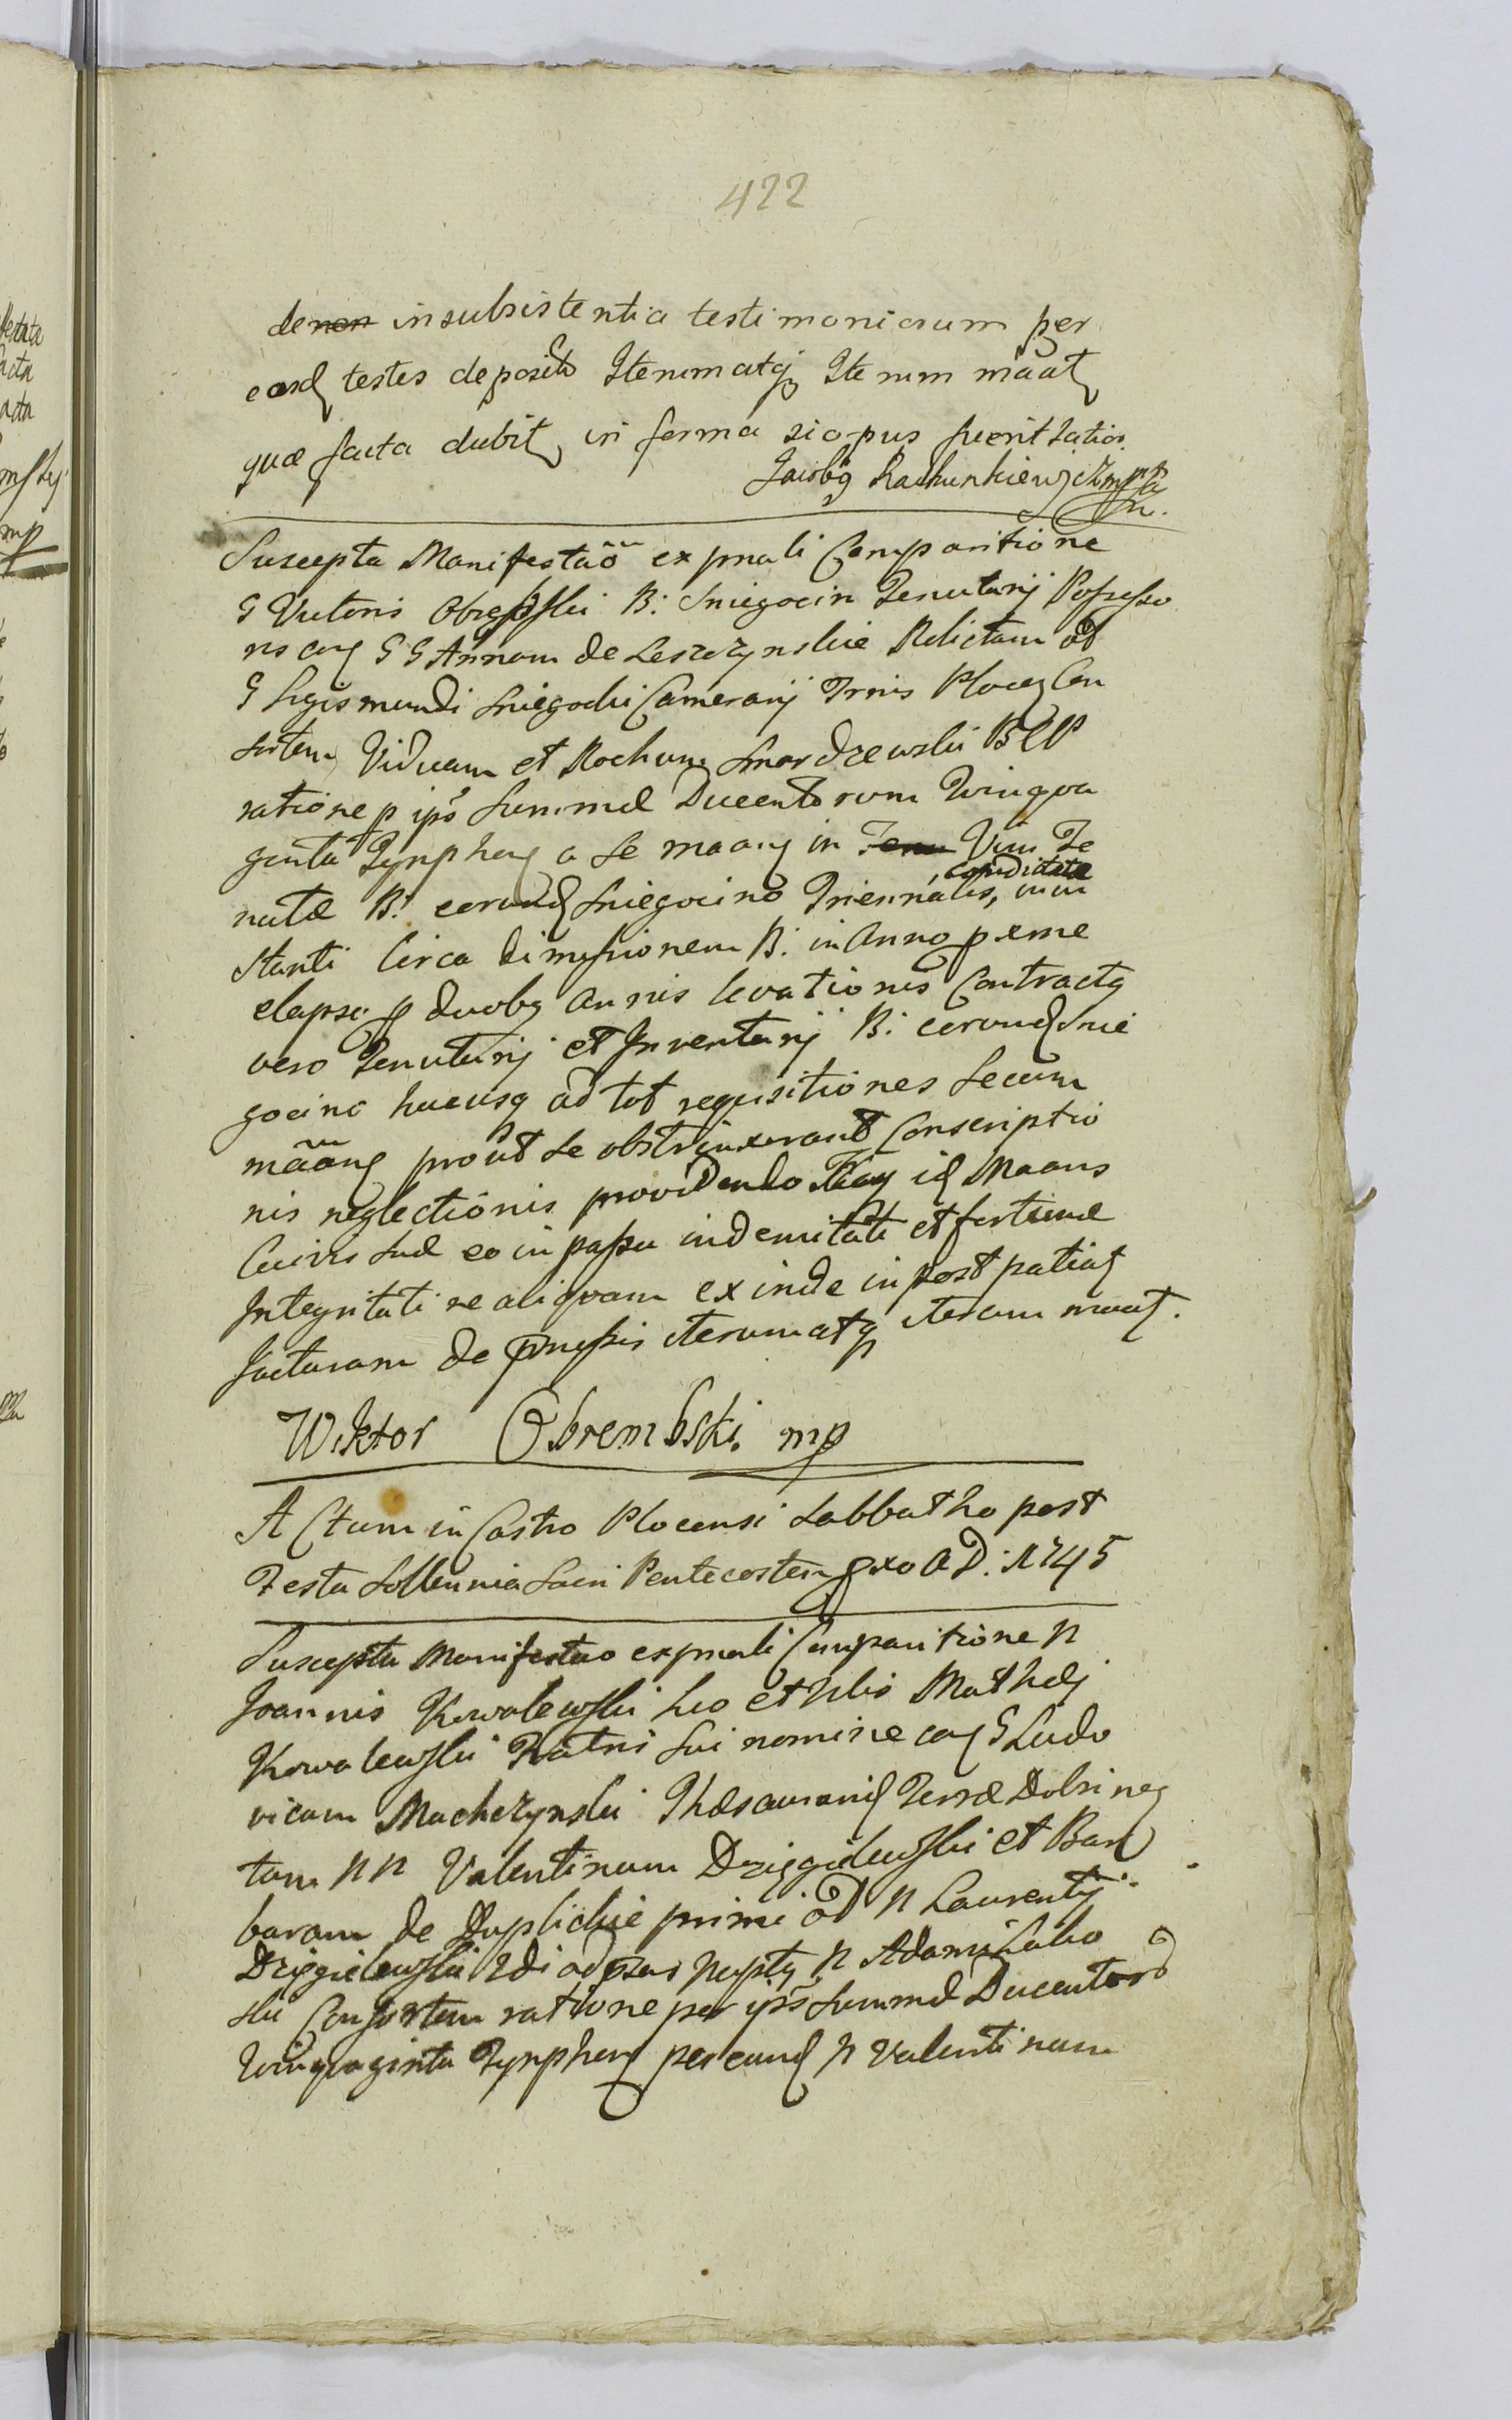 422
de non insubsistentia testimoniorum per
eosd testes deposito Iterumatq Iterum māāt
quæ facta dubit in forma si opus fuerit latior
Jacobq Rachunkiewicz mp
Suscepta Manifestaō ex pnali Comparitione
G Victoris Obrępski B: Sniegocin Tenutarij Possesso
ris cog GG Annam de Leszczynskie Relictam od
G Sigismundi Sniegocki Camerarij Trris Plocq Con
sortem Viduam et Rochum Smardzewski BCP
ratione p ips Summæ Ducentorum Quinqua
ginta Tynpherq a Se maanq in Vim Te
conditatæ
nutæ B: eorund Sniegocino Triennalis, inin
stanti Circa dimissionem B: in Anno pxme
elapso p duobq annis levationis Contractq
vero Tenutarij et Inventarij B: eorund Snie
gocino hucusq ad tot requisitiones Secum
māāng prout Se obstrinxerant Conscriptio
nis neglectionis providendo id Maans
Cuivis Suæ eo in passu indemnitati et fortunæ
Integritati ne aliquam exinde in post patiat
Jacturam de pmissis iterumatq iterum maat.
Wiktor Obrembski mp
Actum in Castro Plocensi Sabbatho post
Festa Sollennia Sacri Pentecosten pxo AD: 1745
Suscepta Manifestao ex pnali Comparitione N
Joannis Kowalewski Suo et Nlis Mathæj
Kowalewski Fratris Sui nomine cog G Ludo
vicum Machczynski Thesaurarid Terræ Dobrineq
tam NN Valentinum Dzięgielewski et Bar
baram de Duplickie primi od N Laurentij
Dzięgielewski 2di ad psns Nuptq N Adami Zabo
ski Consortem ratione per ips Summæ Ducentord
Quinquaginta Tynpherq per eund N Valentinum